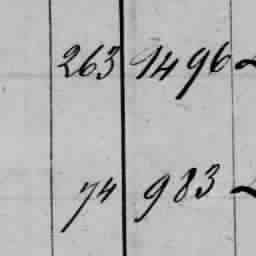 263 1496
74 983